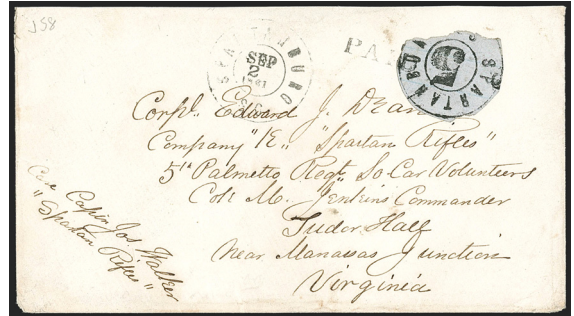 J58
SPARTANBURG S.C.
SEP
2
1861
PAI
SPARTANBU
5
Corpl. Edward J. Dean
Company "K" "Spartan Rifles"
5th Palmetto Regt So Car Volunteers
Col: M. Jenkins Commander
Tudor Hall
Near Manassas Junction
Virginia
Care Captn Jos. Walker
"Spartan Rifles"